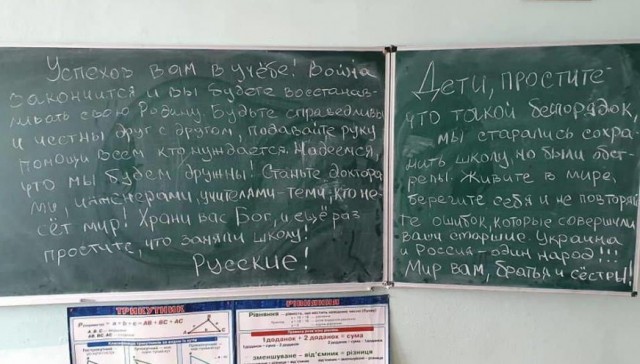 Успехов вам в учёбе! Война
закончится и вы будете восстанав-
ливать свою Родину. Будьте справедливы
и честны друг с другом, подавайте руку
помощи всем кто нуждается. Надеемся,
что мы будем дружны! Станьте доктора-
ми, инженерами, учителями-теми, кто не-
сёт мир! Храни вас Бог, и ещё раз
простите, что заняли школу!
Русские!
Дети, простите
что такой беспорядок,
мы старались сохра-
нить школу, но были обст-
релы. Живите в мире,
берегите себя и не повторяй
те ошибок, которые совершили
ваши старшие. Украина
и Россия-один народ!!!
Мир вам, братья и сёстры!
ТРИКУТНИК
= a + b + c = AB + BC + AC
РІВНЯННЯ
Рівняння
1доданок + 2 доданок = сума
зменшуване - від'ємник = різниця